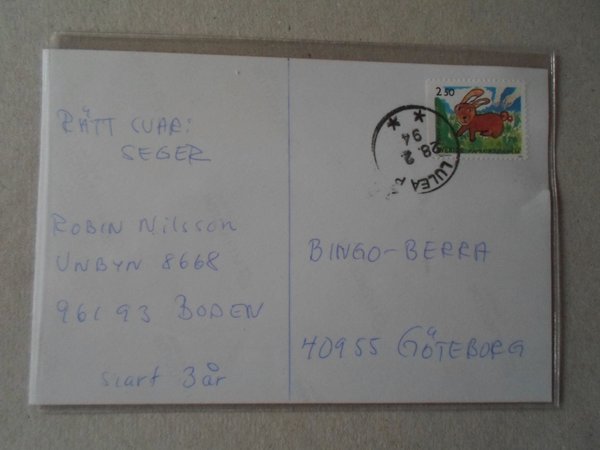 RÄTT SVAR:
SEGER
ROBIN Nilsson
UNBYN 8668
961 93 BODEN
snart 3 år
2 50
28. 2
94
LULEÅ
BINGO-BERRA
40955 GÖTEBORG